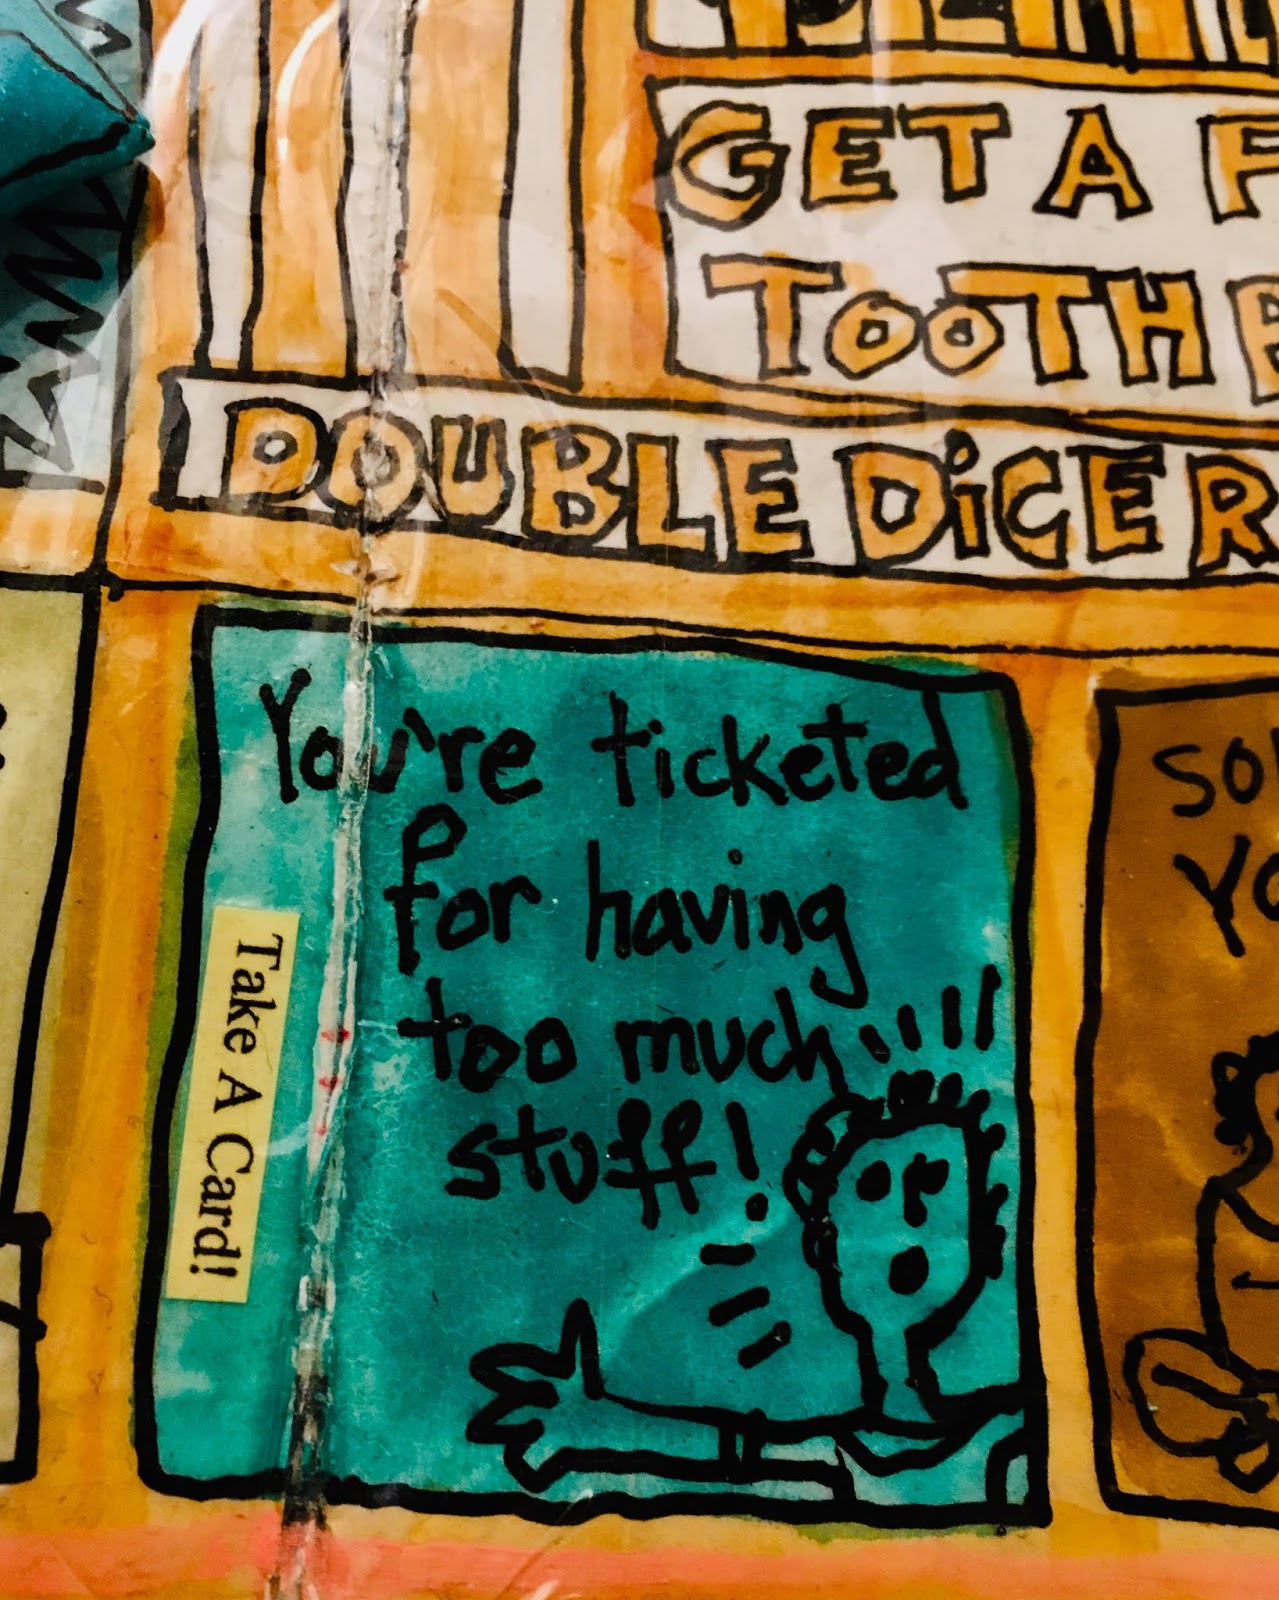 GET A
TOOTH
DOUBLE DiCE
You're ticketed
for having
too much
stuff!
Take A Card!